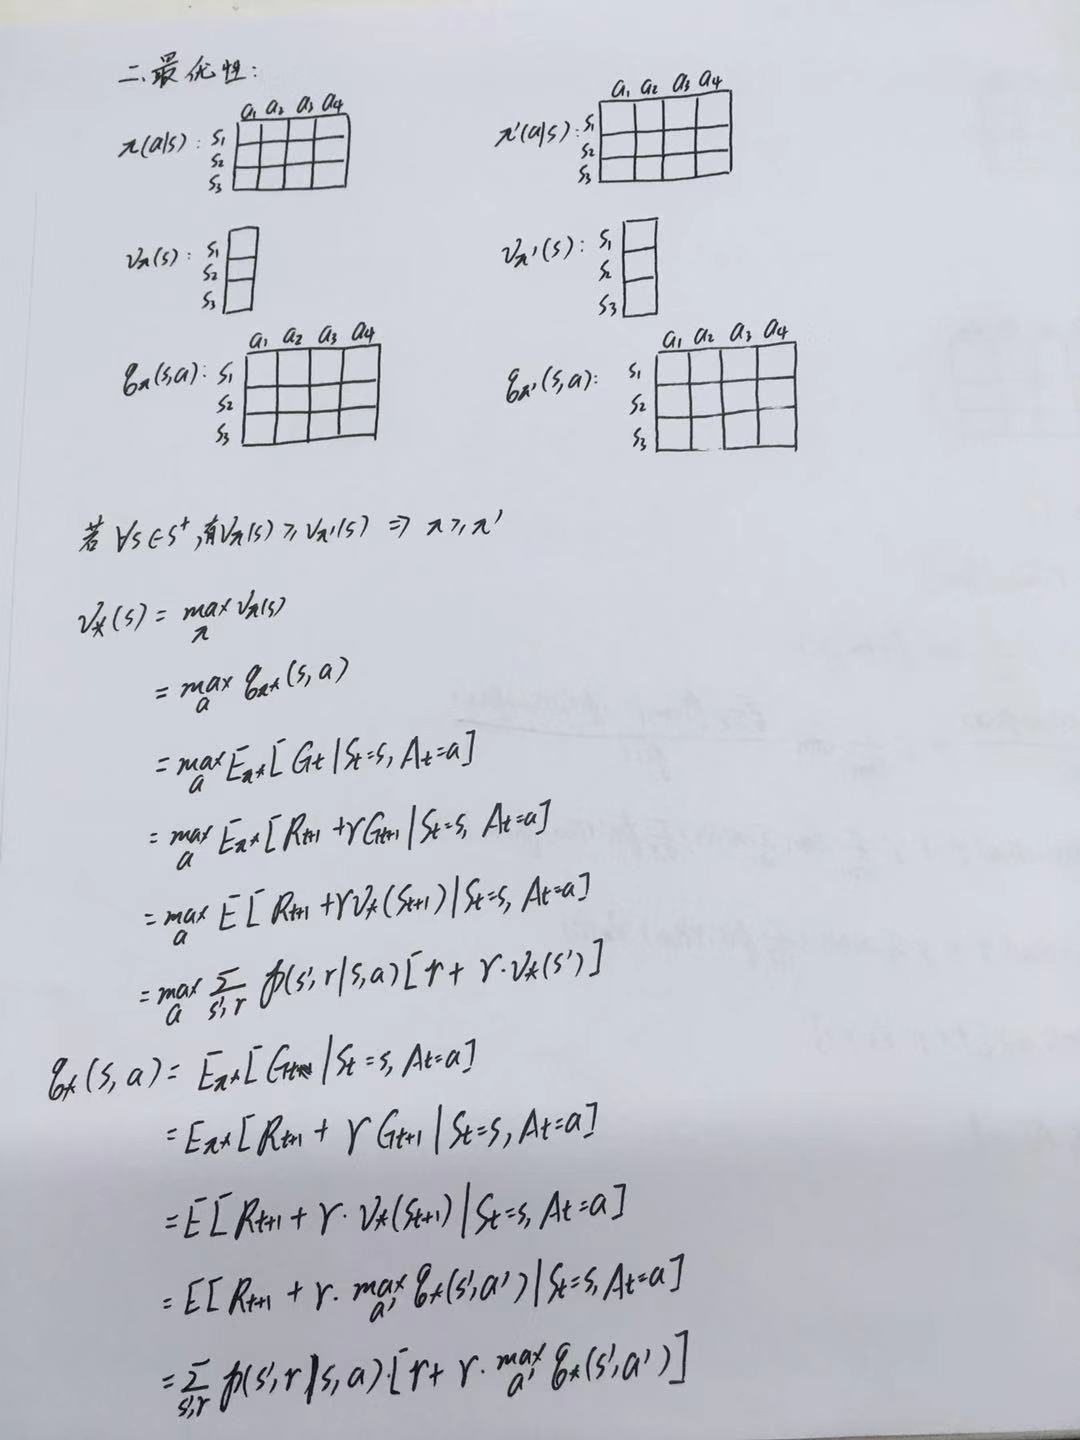 二、最优性:
a₁ a₂ a₃ a₄
π(a|s): s₁
s₂
s₃
a₁ a₂ a₃ a₄
π'(a|s): s₁
s₂
s₃
v_π(s): s₁
s₂
s₃
v_π'(s): s₁
s₂
s₃
a₁ a₂ a₃ a₄
q_π(s,a): s₁
s₂
s₃
a₁ a₂ a₃ a₄
q_π'(s,a): s₁
s₂
s₃
若 ∀s∈S⁺,有v_π(s)≥v_π'(s) ⇒ π≥π'
v_*(s) = max_π v_π(s)
= max_a q_π*(s,a)
= max_a E_π*[G_t|S_t=s, A_t=a]
= max_a E_π*[R_t+1 + γG_t+1|S_t=s, A_t=a]
= max_a E[R_t+1 + γv_*(S_t+1)|S_t=s, A_t=a]
= max_a Σ_s',r p(s',r|s,a)[r + γ·v_*(s')]
q_*(s,a) = E_π*[G_t|S_t=s, A_t=a]
= E_π*[R_t+1 + γG_t+1|S_t=s, A_t=a]
= E[R_t+1 + γ·v_*(S_t+1)|S_t=s, A_t=a]
= E[R_t+1 + γ·max_a' q_*(s',a')|S_t=s, A_t=a]
= Σ_s',r p(s',r|s,a)·[r + γ·max_a' q_*(s',a')]